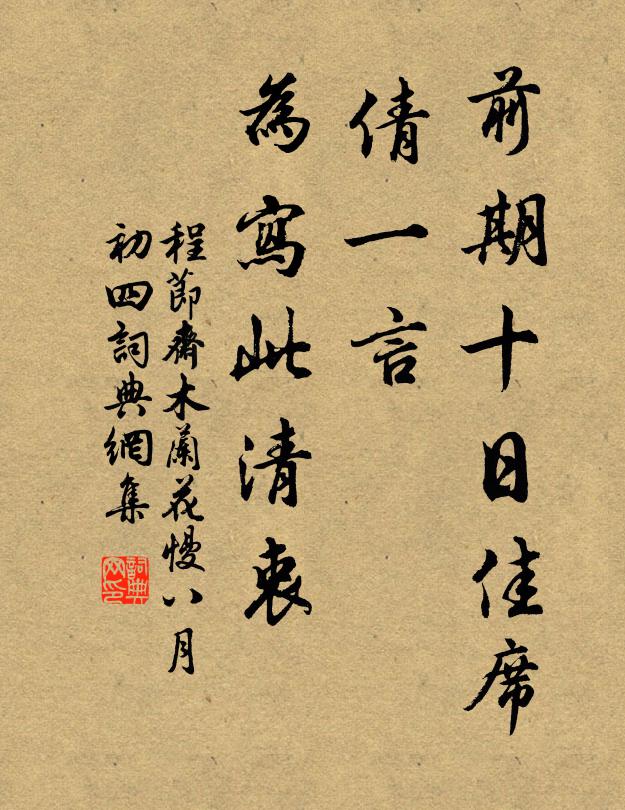 前期十日佳席
倩一言
為寫此清衷
程節齋木蘭花慢八月
初四詞典網集
詞典
网印